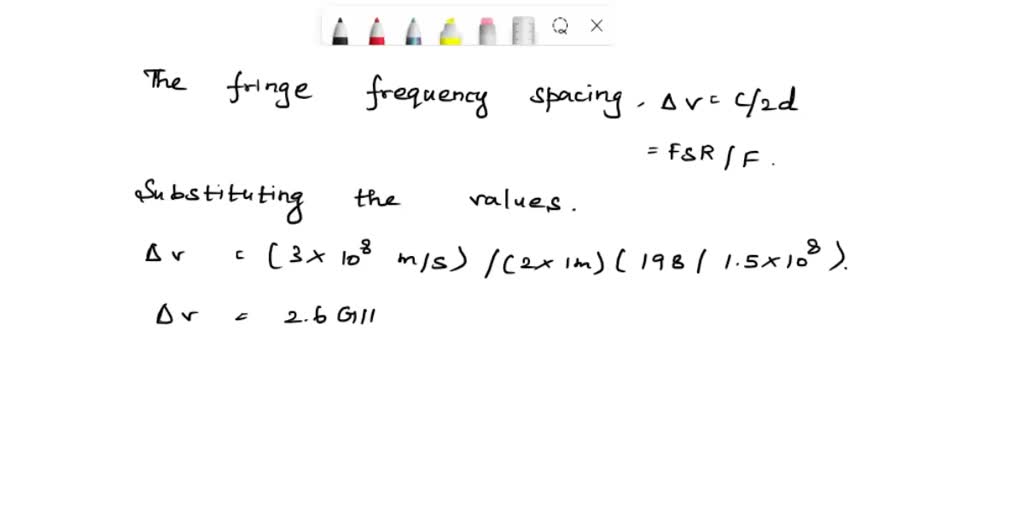 The fringe frequency spacing, Δν = c/2d
= FSR/F.
Substituting the values.
Δν = (3×10⁸ m/s)/(2×1m)(198/1.5×10⁸).
Δν = 2.6 GH